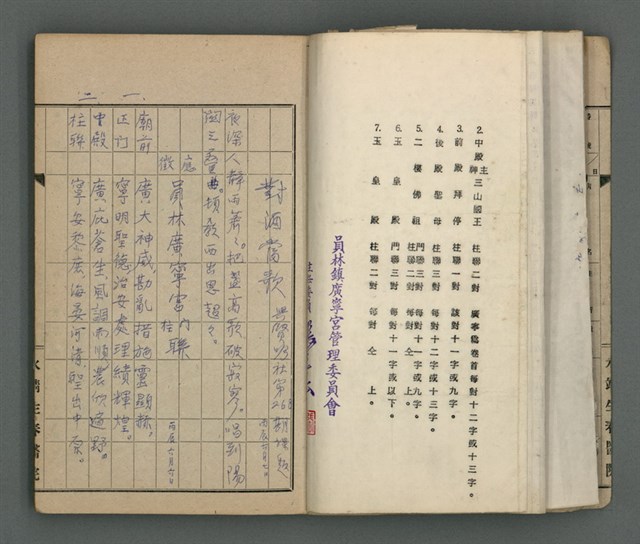 2.中殿主神三山國王 柱聯二對 廣寧為卷首每對十二字或十三字。
3.前殿拜停 柱聯一對 該對十一字或九字。
4.後殿聖母 柱聯二對 每對十二字或十三字。
5.二樓佛祖 門聯三對 每對十一字或九字。 柱聯二對 每對仝上。
6.玉皇殿 門聯三對 每對十一字或以下。
7.玉皇殿 柱聯二對 每對仝上。
員林鎮廣寧宮管理委員會
對酒當歌
夜深人靜雨蕭々。把盃高歌破寂寥。唱到陽
關三疊曲。頓教西出思超々。
應徵 員林廣寧宮內柱聯
一、
廟前正門
廣大神威。勘亂措施靈顯赫。
寧明聖德。治安處理績輝煌。
二、
中殿柱聯
廣庇蒼生。風調雨順農欣遍野。
寧安黎庶。海晏河清聖出中原。